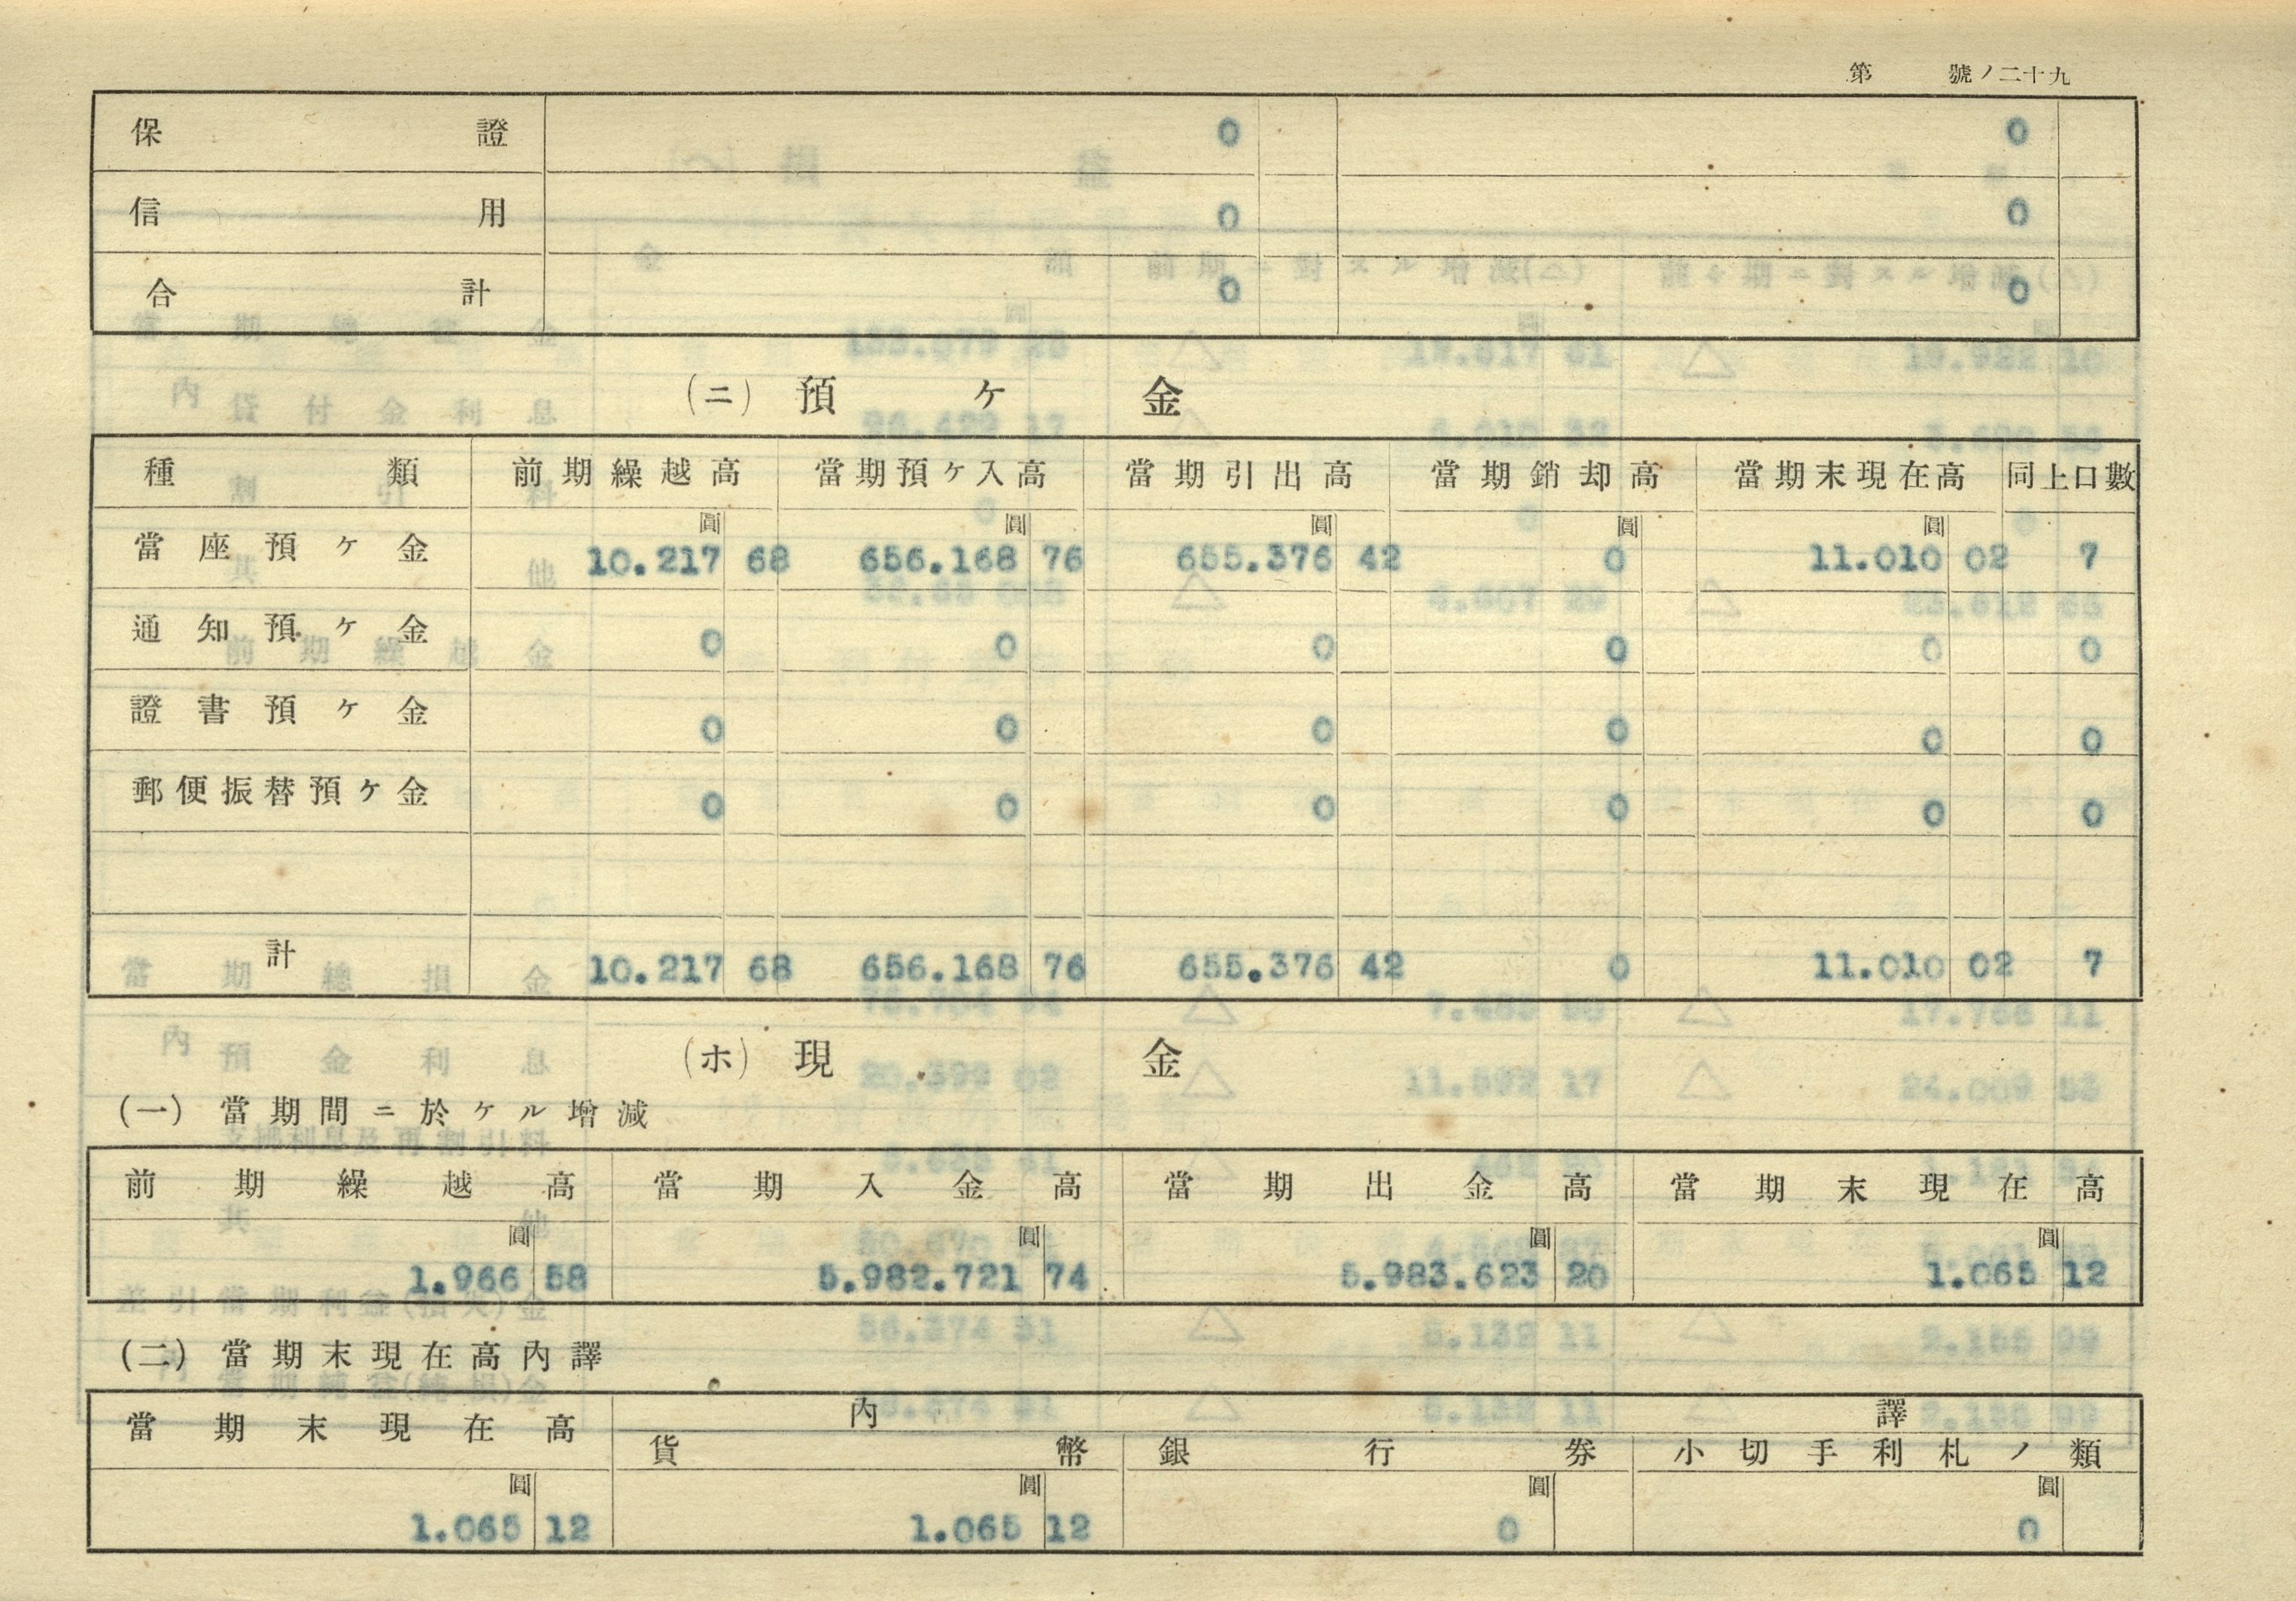 第 號ノ二十九
保證 0 0
信用 0 0
合計 0 0
(ニ) 預ケ金
種類 前期繰越高 當期預ケ入高 當期引出高 當期銷却高 當期末現在高 同上口數
圓 圓 圓 圓 圓
當座預ケ金 10.217 68 656.168 76 655.376 42 0 11.010 02 7
通知預ケ金 0 0 0 0 0 0
證書預ケ金 0 0 0 0 0 0
郵便振替預ケ金 0 0 0 0 0 0
計 10.217 68 656.168 76 655.376 42 0 11.010 02 7
(ホ) 現金
(一) 當期間ニ於ケル增減
前期繰越高 當期入金高 當期出金高 當期末現在高
圓 圓 圓 圓
1.966 58 5.982.721 74 5.983.623 20 1.065 12
(二) 當期末現在高內譯
當期末現在高 內譯
貨幣 銀行券 小切手利札ノ類
圓 圓 圓 圓
1.065 12 1.065 12 0 0